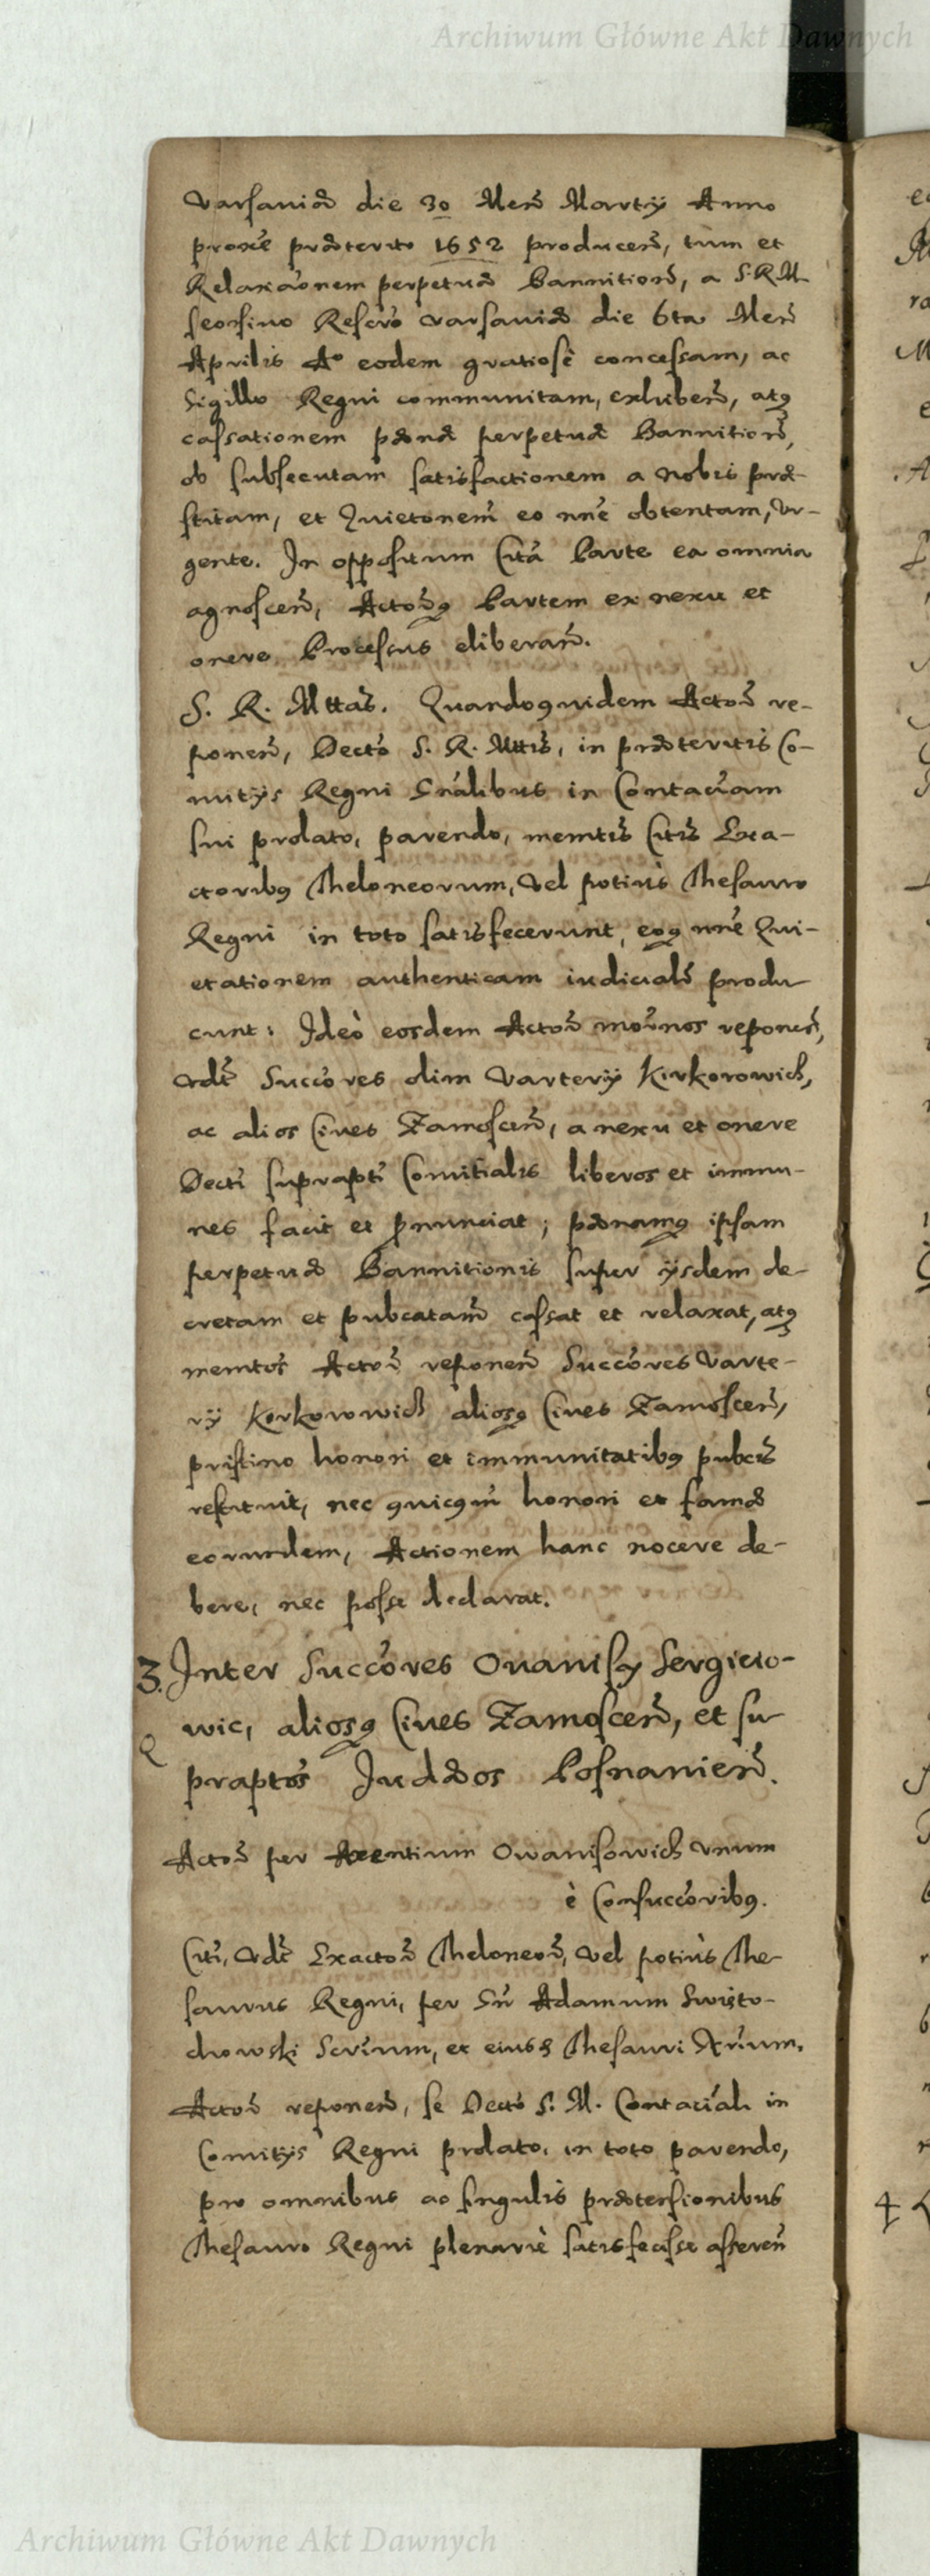 Archiwum Główne Akt Dawnych
Varsaviæ die 30 Men̄ Martij Anno
proxē præterito 1652 producen̄, tum et
Relaxāonem perpetuæ Bannition̄, a S.R.M.
seorsivo Rescrō Varsaviæ die 6ta Men̄
Aprilis Aº eodem gratiosè concessam, ac
Sigillo Regni communitam, exhiben̄, atq3
cassationem pænæ perpetuæ Bannition̄,
ob subsecutam satisfactionem a nobis præ-
stitam, et Quietonem̄ eo nn̄e obtentam, vr-
gente. In oppositum Citā Parte ea omnia
agnoscen̄, Actōq3 Partem ex nexu et
onere Processus eliberan̄.
S. R. Mttas̄. Quandoquidem Actor̄ re-
ponen̄, Dectō S. R. Mttis̄, in præteritis Co-
mitijs Regni Gn̄alibus in Contaciam
sui prolato, parendo, memtis̄ Citis̄ Exa-
ctoribq Theloneorum, vel potiùs Thesauro
Regni in toto satisfecerunt, eoq3 nn̄e Qui-
etationem authenticam iudicialr̄ produ-
cunt: Ideò eosdem Actor̄ mōnos reponen̄,
vdt̄ Succōres olim Varterij Kirkorowich,
ac alios Cives Zamoscen̄, a nexu et onere
Dectī supraptī Comitialis liberos et immu-
nes facit et pronunciat; pænamq3 ipsam
perpetuæ Bannitionis super ijsdem de-
cretam et pubcatam̄ cassat et relaxat, atq3
memtos̄ Actor̄ reponen̄ Succōres Varte-
rij Kirkorowich aliosq3 Cives Zamoscen̄,
pristino honori et immunitatibq pubcis̄
restituit, nec quicqm̄ honori et famæ
eorundem, Actionem hanc nocere de-
bere, nec posse declarat.
3. Inter Succōres Ovanisy Sergieio-
wic, aliosq3 Cives Zamoscen̄, et su
praptos̄ Judæos Posnanien̄.
Actor̄ per Axentium Owanisowich vnum
è Consuccōribq.
Citī, vdt̄ Exactor̄ Theloneor̄, vel potiùs The-
saurus Regni, per Gn̄ Adamum Swięto-
chowski Scrīum, et eiusd Thesauri Nr̄ium.
Actor̄ reponen̄, se Dectō S. M. Contaciāli in
Comitijs Regni prolato, in toto parendo,
pro omnibus ac singulis prætensionibus
Thesauro Regni plenariè satisfecisse asseren̄
Archiwum Główne Akt Dawnych